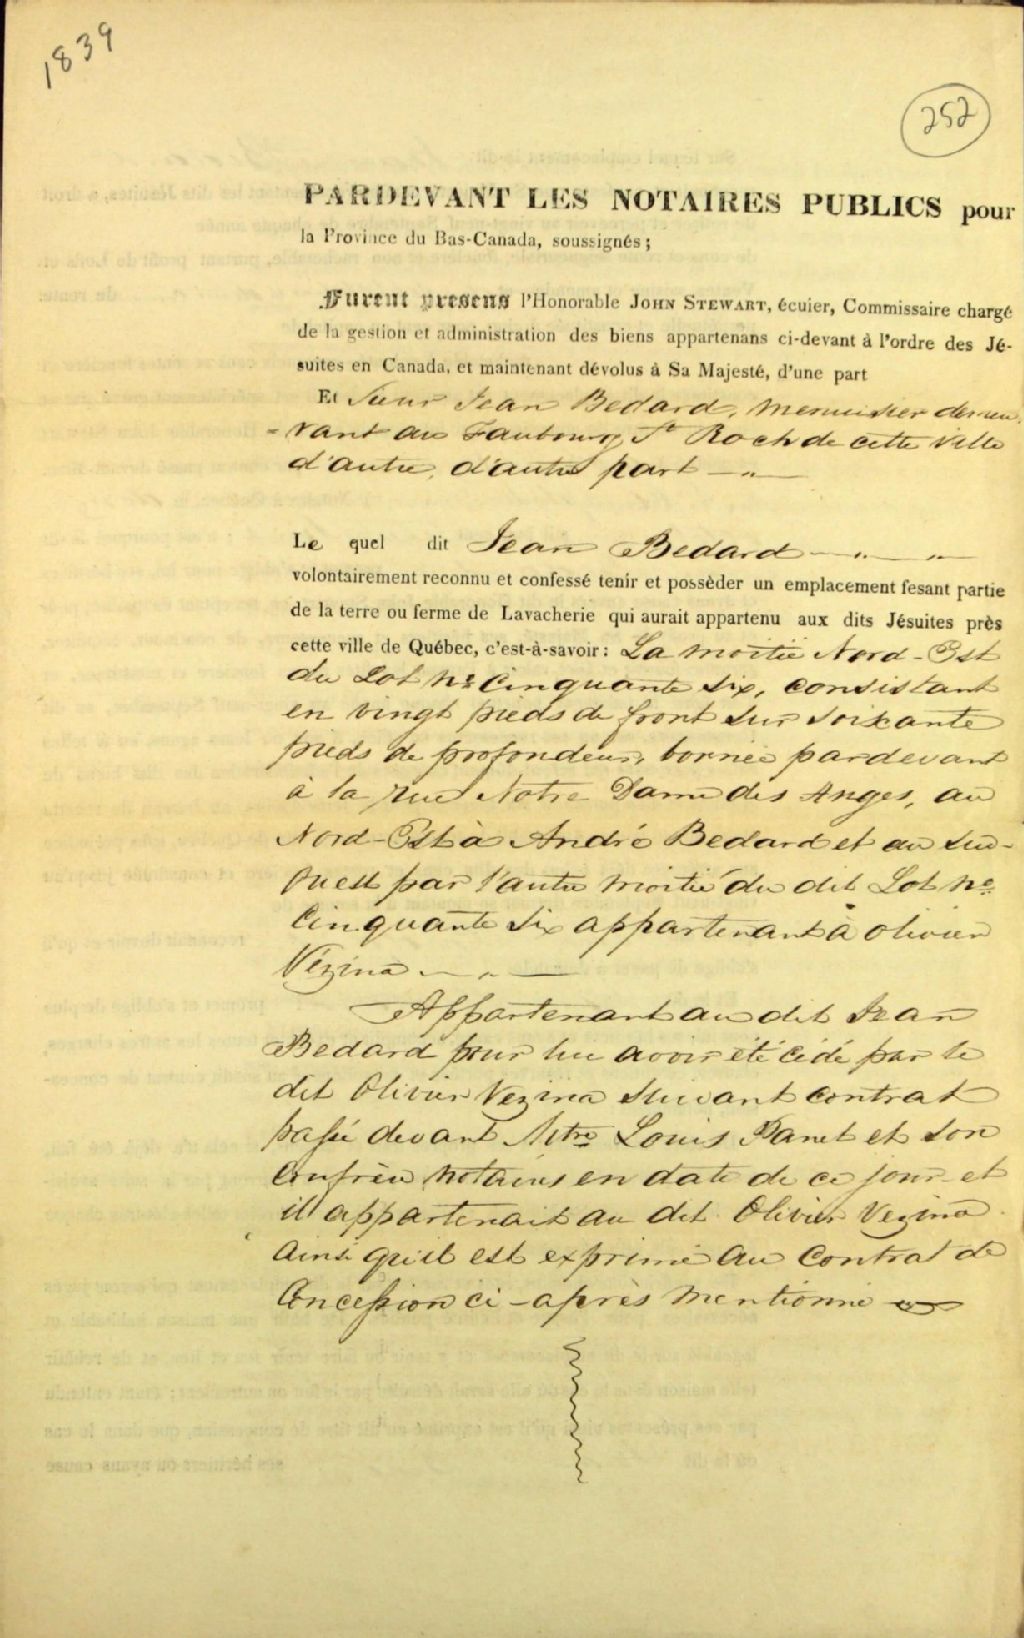 1839
252
PARDEVANT LES NOTAIRES PUBLICS pour
la Province du Bas-Canada, soussignés ;
Furent presens l'Honorable JOHN STEWART, écuier, Commissaire chargé
de la gestion et administration des biens appartenans ci-devant à l'ordre des Jé-
suites en Canada, et maintenant dévolus à Sa Majesté, d'une part
Et Sieur Jean Bedard, menuisier demeu
=rant au Faubourg St Roch de cette ville
d'autre, d'autre part
Le quel dit Jean Bedard
volontairement reconnu et confessé tenir et possèder un emplacement fesant partie
de la terre ou ferme de Lavacherie qui aurait appartenu aux dits Jésuites près
cette ville de Québec, c'est-à-savoir : La moitié Nord-Est
du Lot No Cinquante Six, consistant
en vingt pieds de front sur soixante
pieds de profondeur, bornée pardevant
à la rue Notre Dame des Anges, au
Nord-Est à André Bedard et au Sud-
Ouest par l'autre moitié du dit Lot No
Cinquante Six appartenant à Olivier
Vézina
Appartenant au dit Jean
Bedard pour lui avoir été cédé par le
dit Olivier Vezina suivant contrat
passé devant Mtre Louis Panet et son
Confrère notaires en date de ce jour et
il appartenait au dit Olivier Vezina
Ainsi qu'il est exprimé au Contrat de
Concession ci-après mentionné